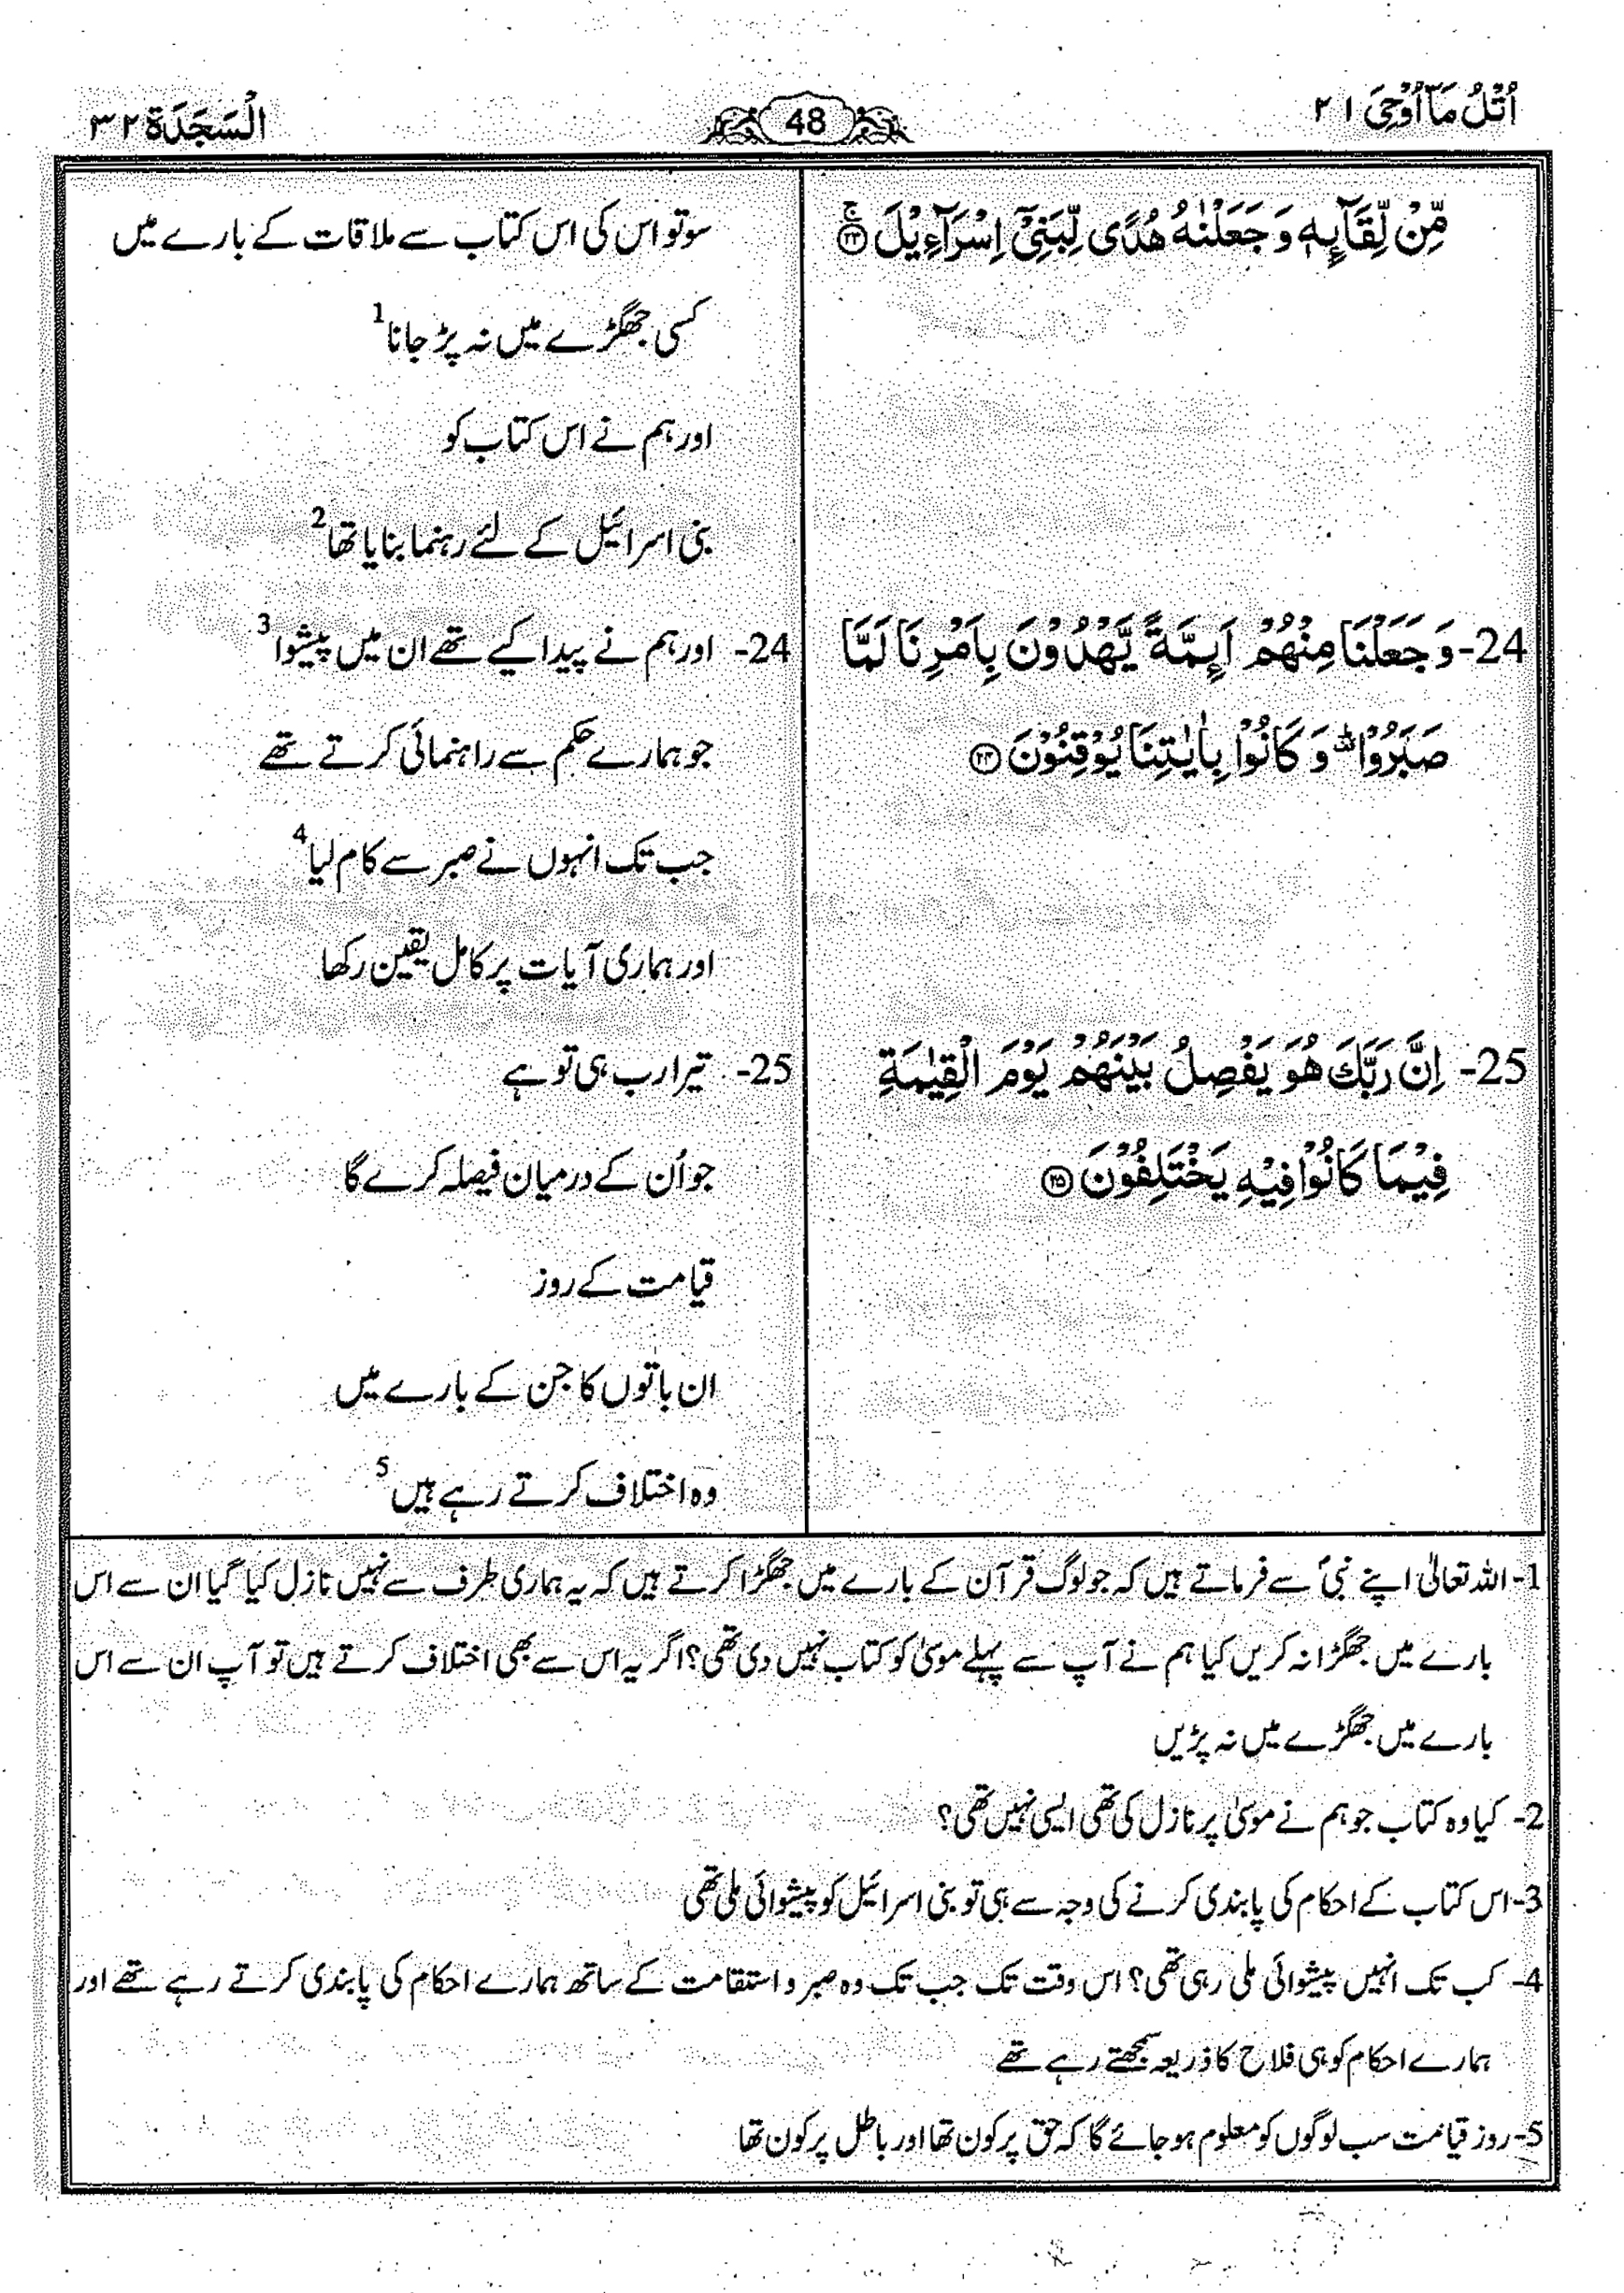 اُتْلُ مَآ اُوْحِیَ ٢١
48
اَلسَّجْدَة ٣٢
مِّنْ لِّقَآىِٕهٖ وَ جَعَلْنٰهُ هُدًی لِّبَنِیْۤ اِسْرَآءِیْلَ ۚ ﴿۲۳﴾
24- وَ جَعَلْنَا مِنْهُمْ اَىِٕمَّةً یَّهْدُوْنَ بِاَمْرِنَا لَمَّا
صَبَرُوْا ؕ۫ وَ كَانُوْا بِاٰیٰتِنَا یُوْقِنُوْنَ ﴿۲۴﴾
25- اِنَّ رَبَّكَ هُوَ یَفْصِلُ بَیْنَهُمْ یَوْمَ الْقِیٰمَةِ
فِیْمَا كَانُوْا فِیْهِ یَخْتَلِفُوْنَ ﴿۲۵﴾
سو تو اس کی اس کتاب سے ملاقات کے بارے میں
کسی جھگڑے میں نہ پڑ جانا 1
اور ہم نے اس کتاب کو
بنی اسرائیل کے لئے رہنما بنایا تھا 2
24- اور ہم نے پیدا کیے تھے ان میں پیشوا 3
جو ہمارے حکم سے راہنمائی کرتے تھے
جب تک انہوں نے صبر سے کام لیا 4
اور ہماری آیات پر کامل یقین رکھا
25- تیرا رب ہی تو ہے
جو اُن کے درمیان فیصلہ کرے گا
قیامت کے روز
ان باتوں کا جن کے بارے میں
وہ اختلاف کرتے رہے ہیں 5
1- اللہ تعالیٰ اپنے نبیؐ سے فرماتے ہیں کہ جو لوگ قرآن کے بارے میں جھگڑا کرتے ہیں کہ یہ ہماری طرف سے نہیں نازل کیا گیا ان سے اس
بارے میں جھگڑا نہ کریں کیا ہم نے آپ سے پہلے موسیٰ کو کتاب نہیں دی تھی؟ اگر یہ اس سے بھی اختلاف کرتے ہیں تو آپ ان سے اس
بارے میں جھگڑے میں نہ پڑیں
2- کیا وہ کتاب جو ہم نے موسیٰ پر نازل کی تھی ایسی نہیں تھی؟
3- اس کتاب کے احکام کی پابندی کرنے کی وجہ سے ہی تو بنی اسرائیل کو پیشوائی ملی تھی
4- کب تک انہیں پیشوائی ملی رہی تھی؟ اس وقت تک جب تک وہ صبر و استقامت کے ساتھ ہمارے احکام کی پابندی کرتے رہے تھے اور
ہمارے احکام کو ہی فلاح کا ذریعہ سمجھتے رہے تھے
5- روز قیامت سب لوگوں کو معلوم ہو جائے گا کہ حق پر کون تھا اور باطل پر کون تھا